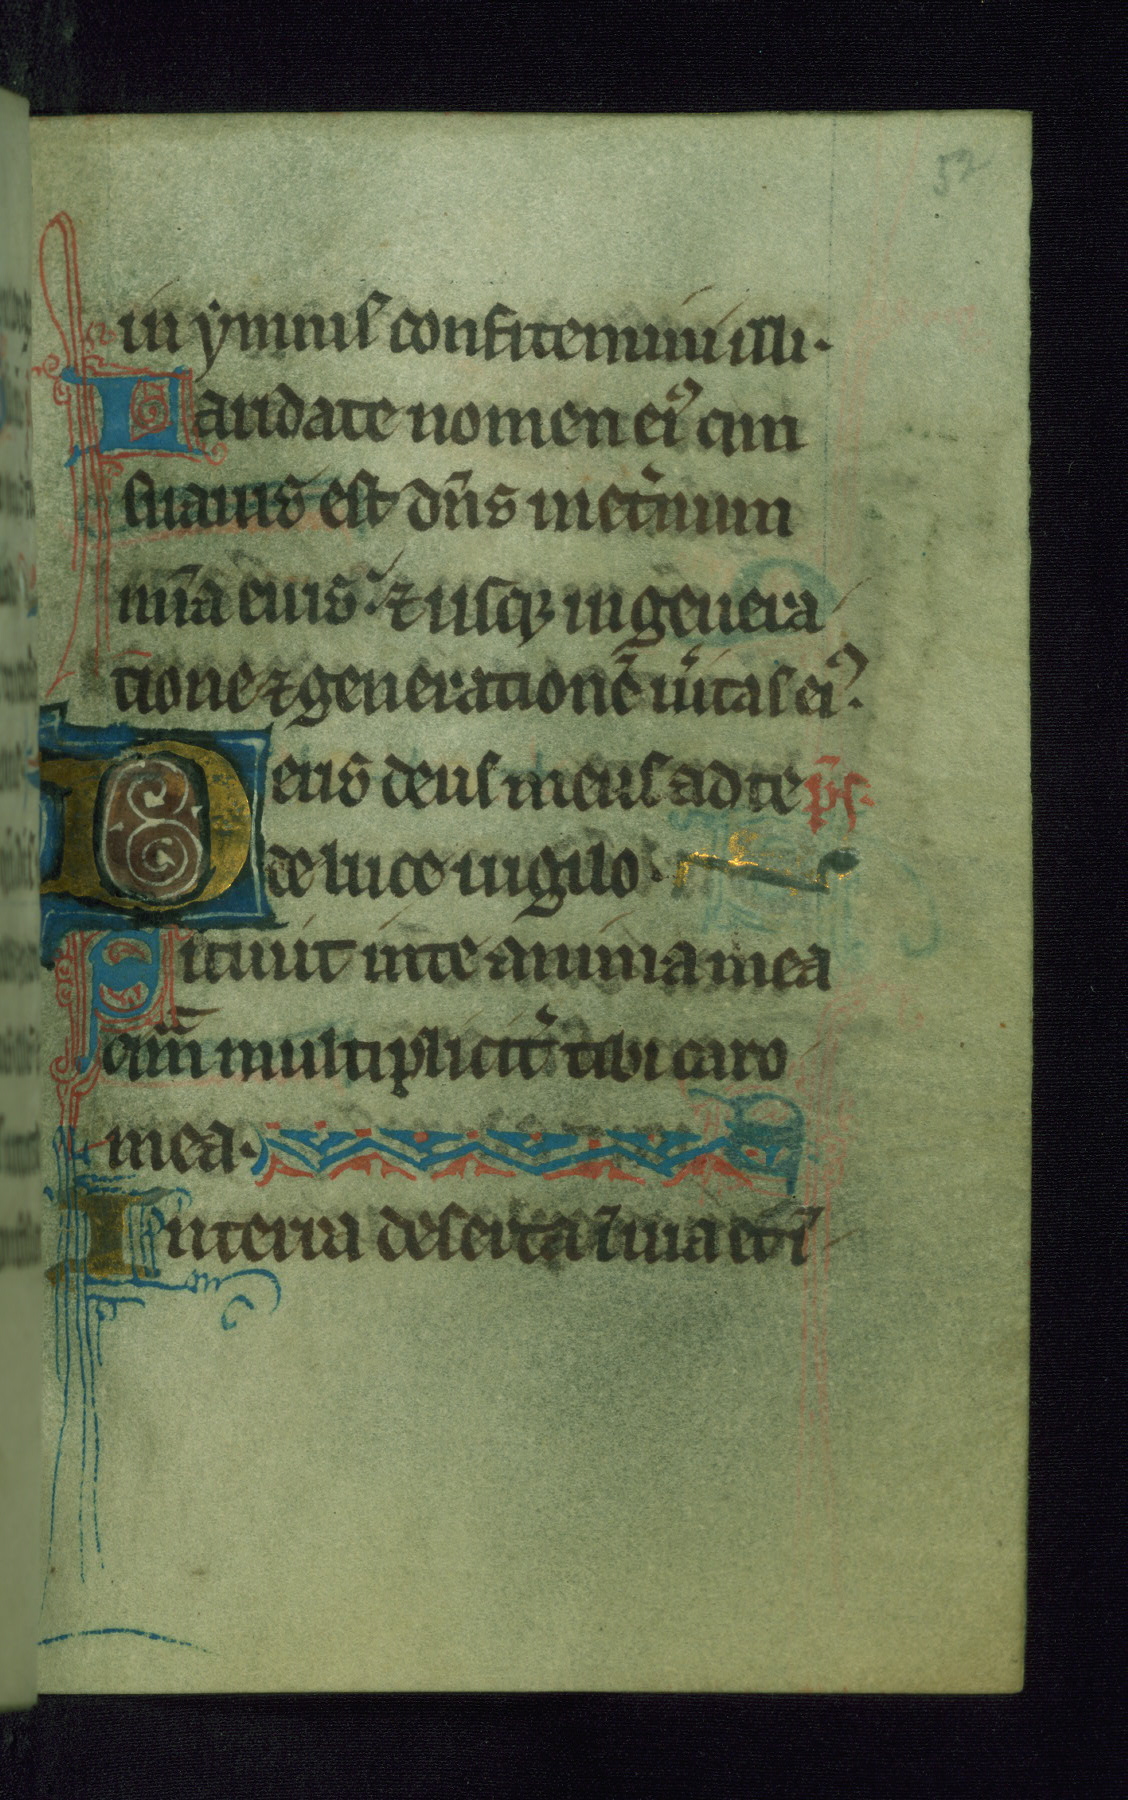 52
in ẏmnis confitemini illi·
Laudate nomen ei⁹ qm̄
suauis est dn̄s inet̾num
mīa eius· ⁊ usqꝫ in genera
tione ⁊ generationē ūitas ei⁹·
Deus deus meus ad te p̄s·
de luce uigilo·
Sitiuit in te anima mea
qm̄ multiplicit̾ tibi caro
mea·
In terra deserta īuia et ī